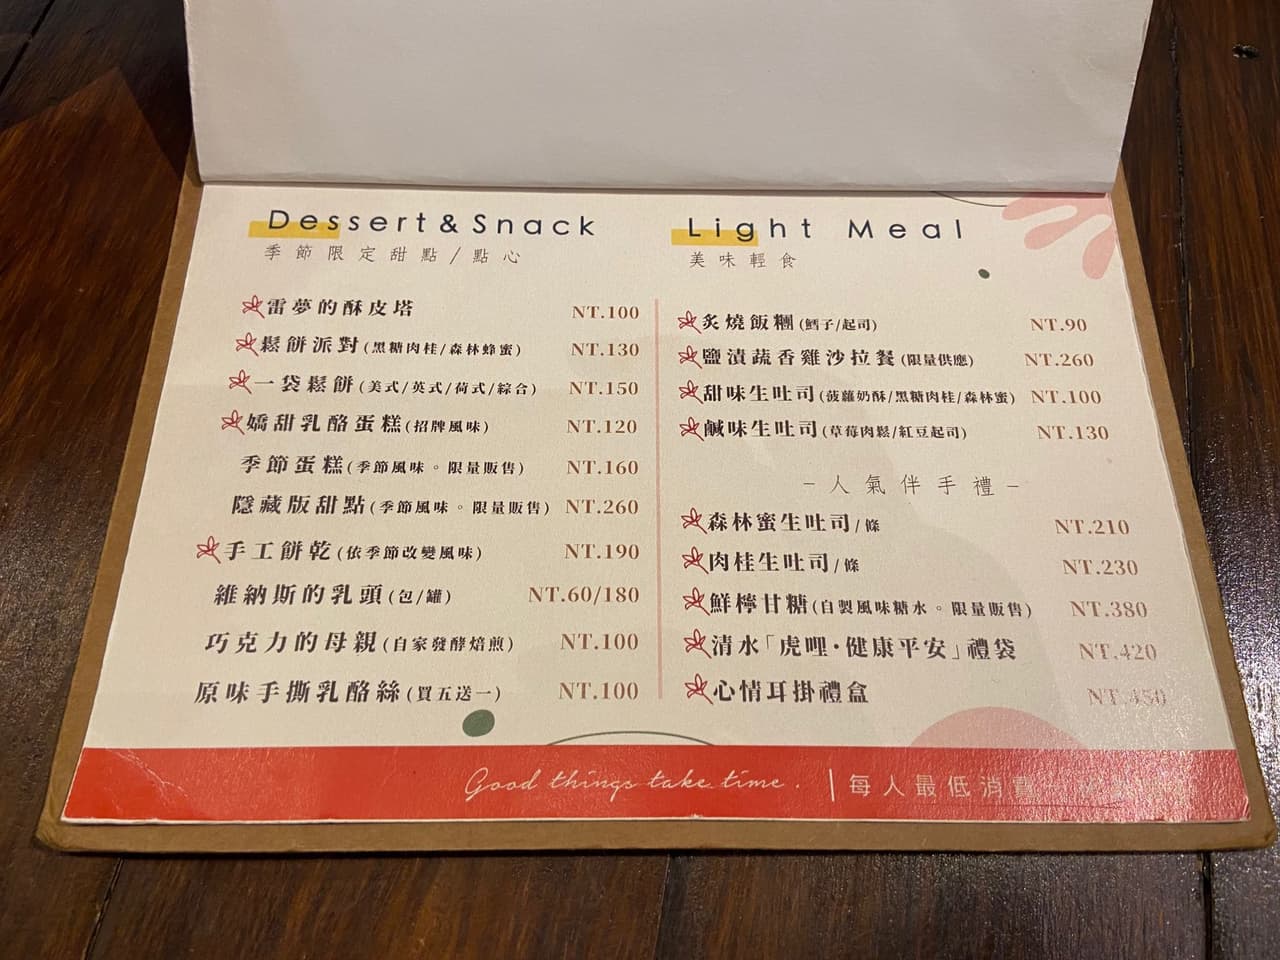 Dessert&Snack
季節限定甜點/點心
雷夢的酥皮塔 NT.100
鬆餅派對(黑糖肉桂/森林蜂蜜) NT.130
一袋鬆餅(美式/英式/荷式/綜合) NT.150
嬌甜乳酪蛋糕(招牌風味) NT.120
季節蛋糕(季節風味。限量販售) NT.160
隱藏版甜點(季節風味。限量販售) NT.260
手工餅乾(依季節改變風味) NT.190
維納斯的乳頭(包/罐) NT.60/180
巧克力的母親(自家發酵焙煎) NT.100
原味手撕乳酪絲(買五送一) NT.100
Light Meal
美味輕食
炙燒飯糰(鱈子/起司) NT.90
鹽漬蔬香雞沙拉餐(限量供應) NT.260
甜味生吐司(菠蘿奶酥/黑糖肉桂/森林蜜) NT.100
鹹味生吐司(草莓肉鬆/紅豆起司) NT.130
–人氣伴手禮–
森林蜜生吐司/條 NT.210
肉桂生吐司/條 NT.230
鮮檸甘糖(自製風味糖水。限量販售) NT.380
清水「虎哩·健康平安」禮袋 NT.420
心情耳掛禮盒 NT.450
Good things take time. | 每人最低消費